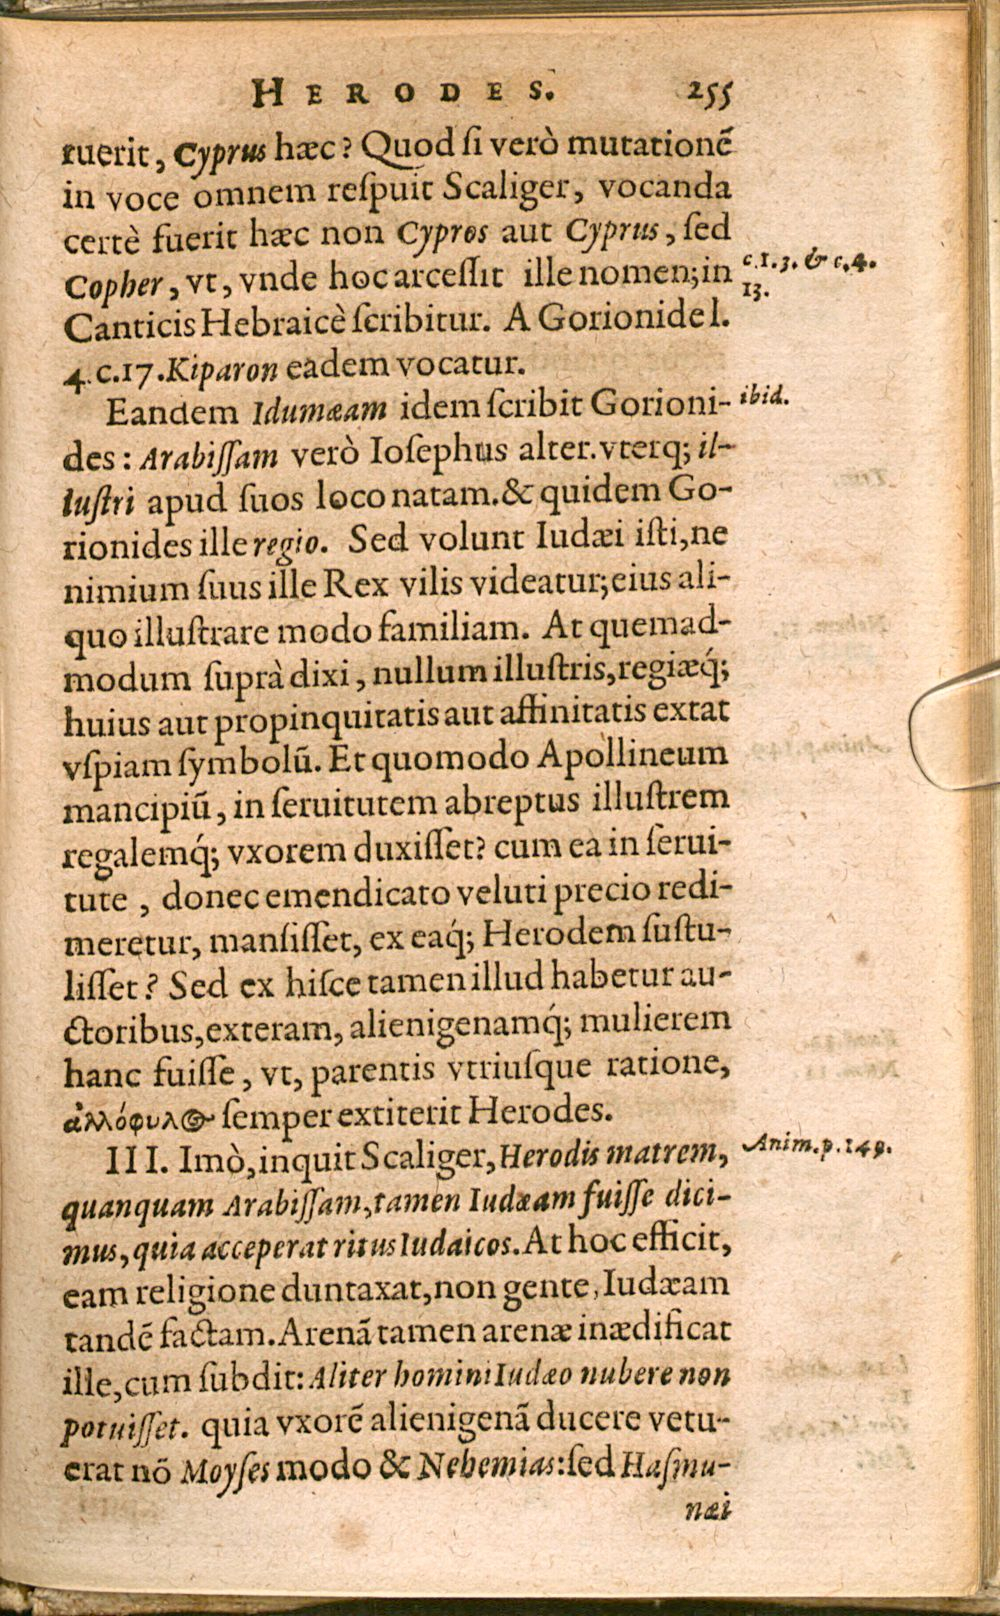 HERODES. 255
tuerit, Cyprus hæc? Quod ſi verò mutationẽ
in voce omnem reſpuit Scaliger, vocanda
certè fuerit hæc non Cypros aut Cyprus, ſed
Copher, vt, vnde hoc arceſſit ille nomen; in
c. 1. 3. & c. 4.
13.
Canticis Hebraicè ſcribitur. A Gorionide l.
4. c. 17. Kiparon eadem vocatur.
Eandem Idumæam idem ſcribit Gorioni-
ibid.
des: Arabiſſam verò Ioſephus alter. vterq; il-
luſtri apud ſuos loco natam. & quidem Go-
rionides ille regio. Sed volunt Iudæi iſti, ne
nimium ſuus ille Rex vilis videatur; eius ali-
quo illuſtrare modo familiam. At quemad-
modum ſuprà dixi, nullum illuſtris, regiæq́;
huius aut propinquitatis aut affinitatis extat
vſpiam ſymbolũ. Et quomodo Apollineum
mancipiũ, in ſeruitutem abreptus illuſtrem
regalemq́; vxorem duxiſſet? cum ea in ſerui-
tute, donec emendicato veluti precio redi-
meretur, manſiſſet, ex eaq́; Herodem ſuſtu-
liſſet? Sed ex hiſce tamen illud habetur au-
ctoribus, exteram, alienigenamq́; mulierem
hanc fuiſſe, vt, parentis vtriuſque ratione,
ἀλλόφυλος ſemper extiterit Herodes.
III. Imò, inquit Scaliger, Herodis matrem,
Anim. p. 149.
quanquam Arabiſſam, tamen Iudæam fuiſſe dici-
mus, quia acceperat ritus Iudaicos. At hoc efficit,
eam religione duntaxat, non gente, Iudæam
tandẽ factam. Arenã tamen arenæ inædificat
ille, cum ſubdit: Aliter homini Iudæo nubere non
potuiſſet. quia vxorẽ alienigenã ducere vetu-
erat nõ Moyſes modo & Nehemias: ſed Haſmu-
næi